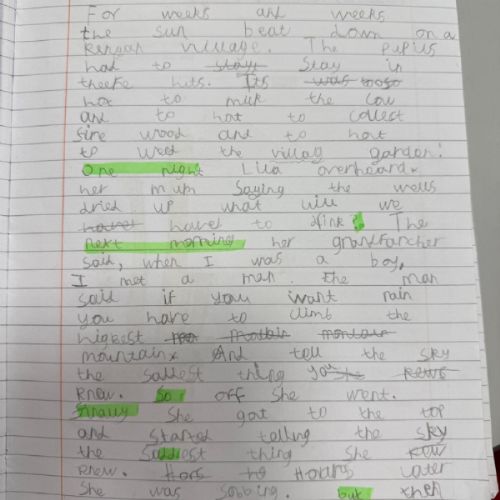 For weeks and weeks
the sun beat down on a
Kenyan village. The pupils
had to stay in
theere huts. Its was tooso
hot to milk the cow
and to hot to collest
fire wood and to hot
to weed the villag garden!
One night Lila overheard
her mum saying the wells
dried up what will we
have to drink? The
next morning her grandfarther
said, when I was a boy,
I met a man. The man
said if you want rain
you have to climb the
highest
mountain. And tell the sky
the saddest thing you
know. So off she went.
Finally she got to the top
and started telling the sky
the saddest thing she
knew. Hours later
She was sobbing. but then